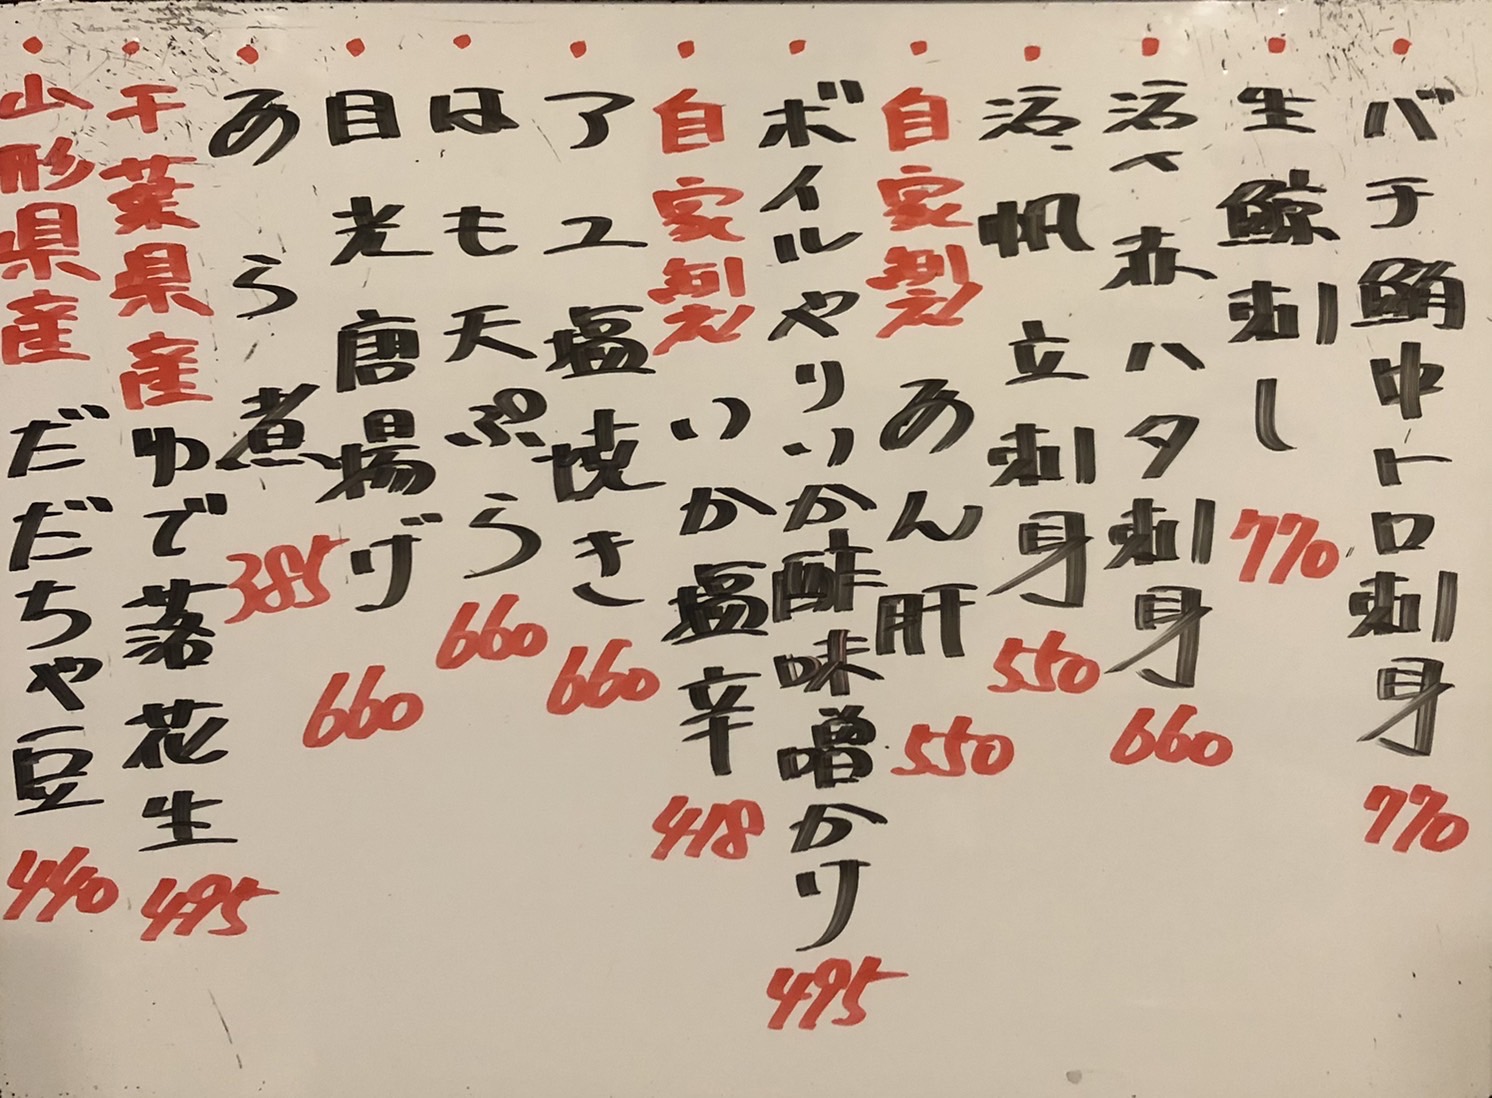 ・バチ鮪中トロ刺身 770
・生鯨刺し 770
・活〆赤ハタ刺身 660
・活〆帆立刺身 550
・自家製あん肝 550
・ボイルやりいか酢味噌かけ 495
・自家製いか塩辛 418
・アユ塩焼き 660
・はも天ぷら 660
・目光唐揚げ 660
・あら煮 385
・千葉県産ゆで落花生 495
・山形県産だだちゃ豆 440